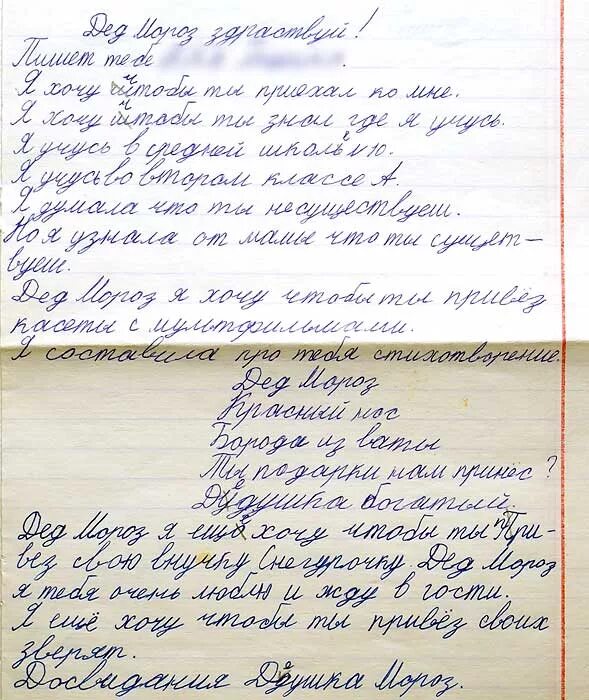 Дед Мороз здраствуй!
Пишет тебе
Я хочу чтобы ты приехал ко мне.
Я хочу чтобы ты знал где я учусь.
Я учусь в средней школе №10.
Я учусь во втором классе А.
Я думала что ты несуществуеш.
Но я узнала от мамы что ты сущет-
вуеш.
Дед Мороз я хочу чтобы ты привёз
касеты с мултфильмами.
Я составила про тебя стихотворение.
Дед Мороз
Красный нос
Борода из ваты
Ты подарки нам принёс?
Дедушка богатый.
Дед Мороз я ещё хочу чтобы ты при-
вёз свою внучку Снегурочку. Дед Мороз
я тебя очень люблю и жду в гости.
Я ещё хочу чтобы ты привёз своих
зверят.
Досвидания Дедушка Мороз.